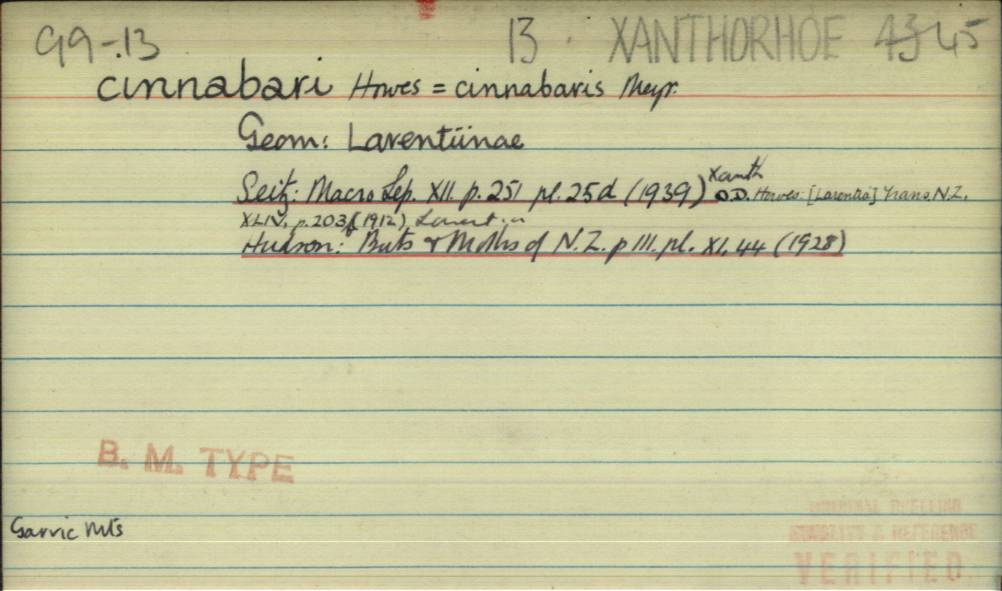 G9-.13 13. XANTHORHOE 43 45
cinnabari Howes = cinnabaris Meyr.
Geom: Larentiinae
Seitz: Macro Lep. XII. p. 251 pl. 25d (1939) Xanth O.D. Howes: [Larentia] Trans. N.Z.
XLIV. p. 203 (1912)
Hudson: Buts & Moths of N.Z. p 111. pl. XI, 44 (1928)
B. M. TYPE
Garvie Mts
ORIGINAL SPELLING
REFERENCE
VERIFIED.